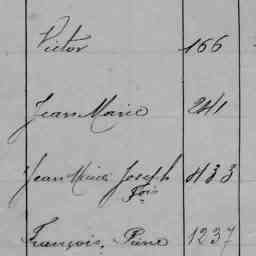 Victor 166
Jean Marie 241
Jean Marie Joseph 433
fois
François, Pierre 1237